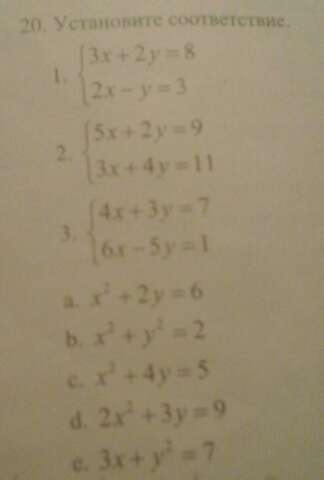 20. Установите соответствие.
1. {3x + 2y = 8
2x − y = 3
2. {5x + 2y = 9
3x + 4y = 11
3. {4x + 3y = 7
6x − 5y = 1
a. x² + 2y = 6
b. x² + y² = 2
c. x² + 4y = 5
d. 2x² + 3y = 9
e. 3x + y² = 7